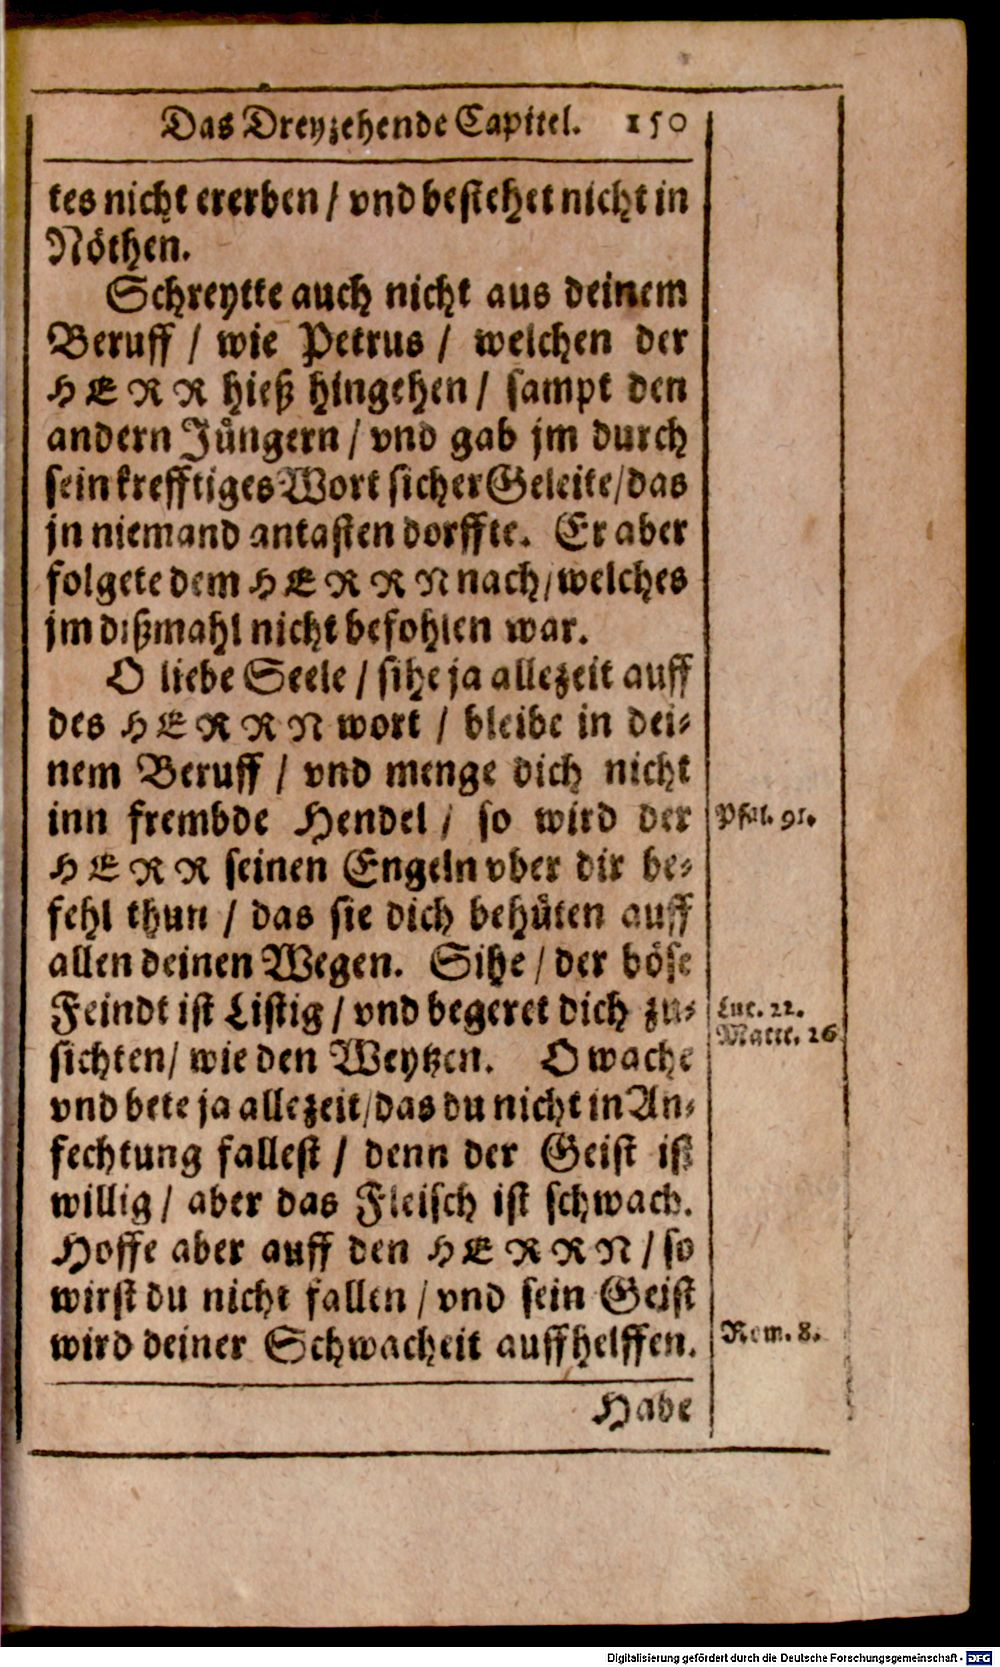 Das Dreyzehende Capitel. 150
tes nicht ererben / vnd bestehet nicht in
Nöthen.
Schreytte auch nicht aus deinem
Beruff / wie Petrus / welchen der
HERR hieß hingehen / sampt den
andern Jüngern / vnd gab jm durch
sein krefftiges Wort sicher Geleite / das
jn niemand antasten dorffte. Er aber
folgete dem HERRN nach / welches
jm dißmahl nicht befohlen war.
O liebe Seele / sihe ja allezeit auff
des HERRN wort / bleibe in dei-
nem Beruff / vnd menge dich nicht
inn frembde Hendel / so wird der
Psal. 91.
HERR seinen Engeln vber dir be-
fehl thun / das sie dich behüten auff
allen deinen Wegen. Sihe / der böse
Feindt ist Listig / vnd begeret dich zu-
Luc. 22.
Matt. 26
sichten / wie den Weytzen. O wache
vnd bete ja allezeit / das du nicht in An-
fechtung fallest / denn der Geist ist
willig / aber das Fleisch ist schwach.
Hoffe aber auff den HERRN / so
wirst du nicht fallen / vnd sein Geist
wird deiner Schwacheit auffhelffen.
Rom. 8.
Habe
Digitalisierung gefördert durch die Deutsche Forschungsgemeinschaft - DFG